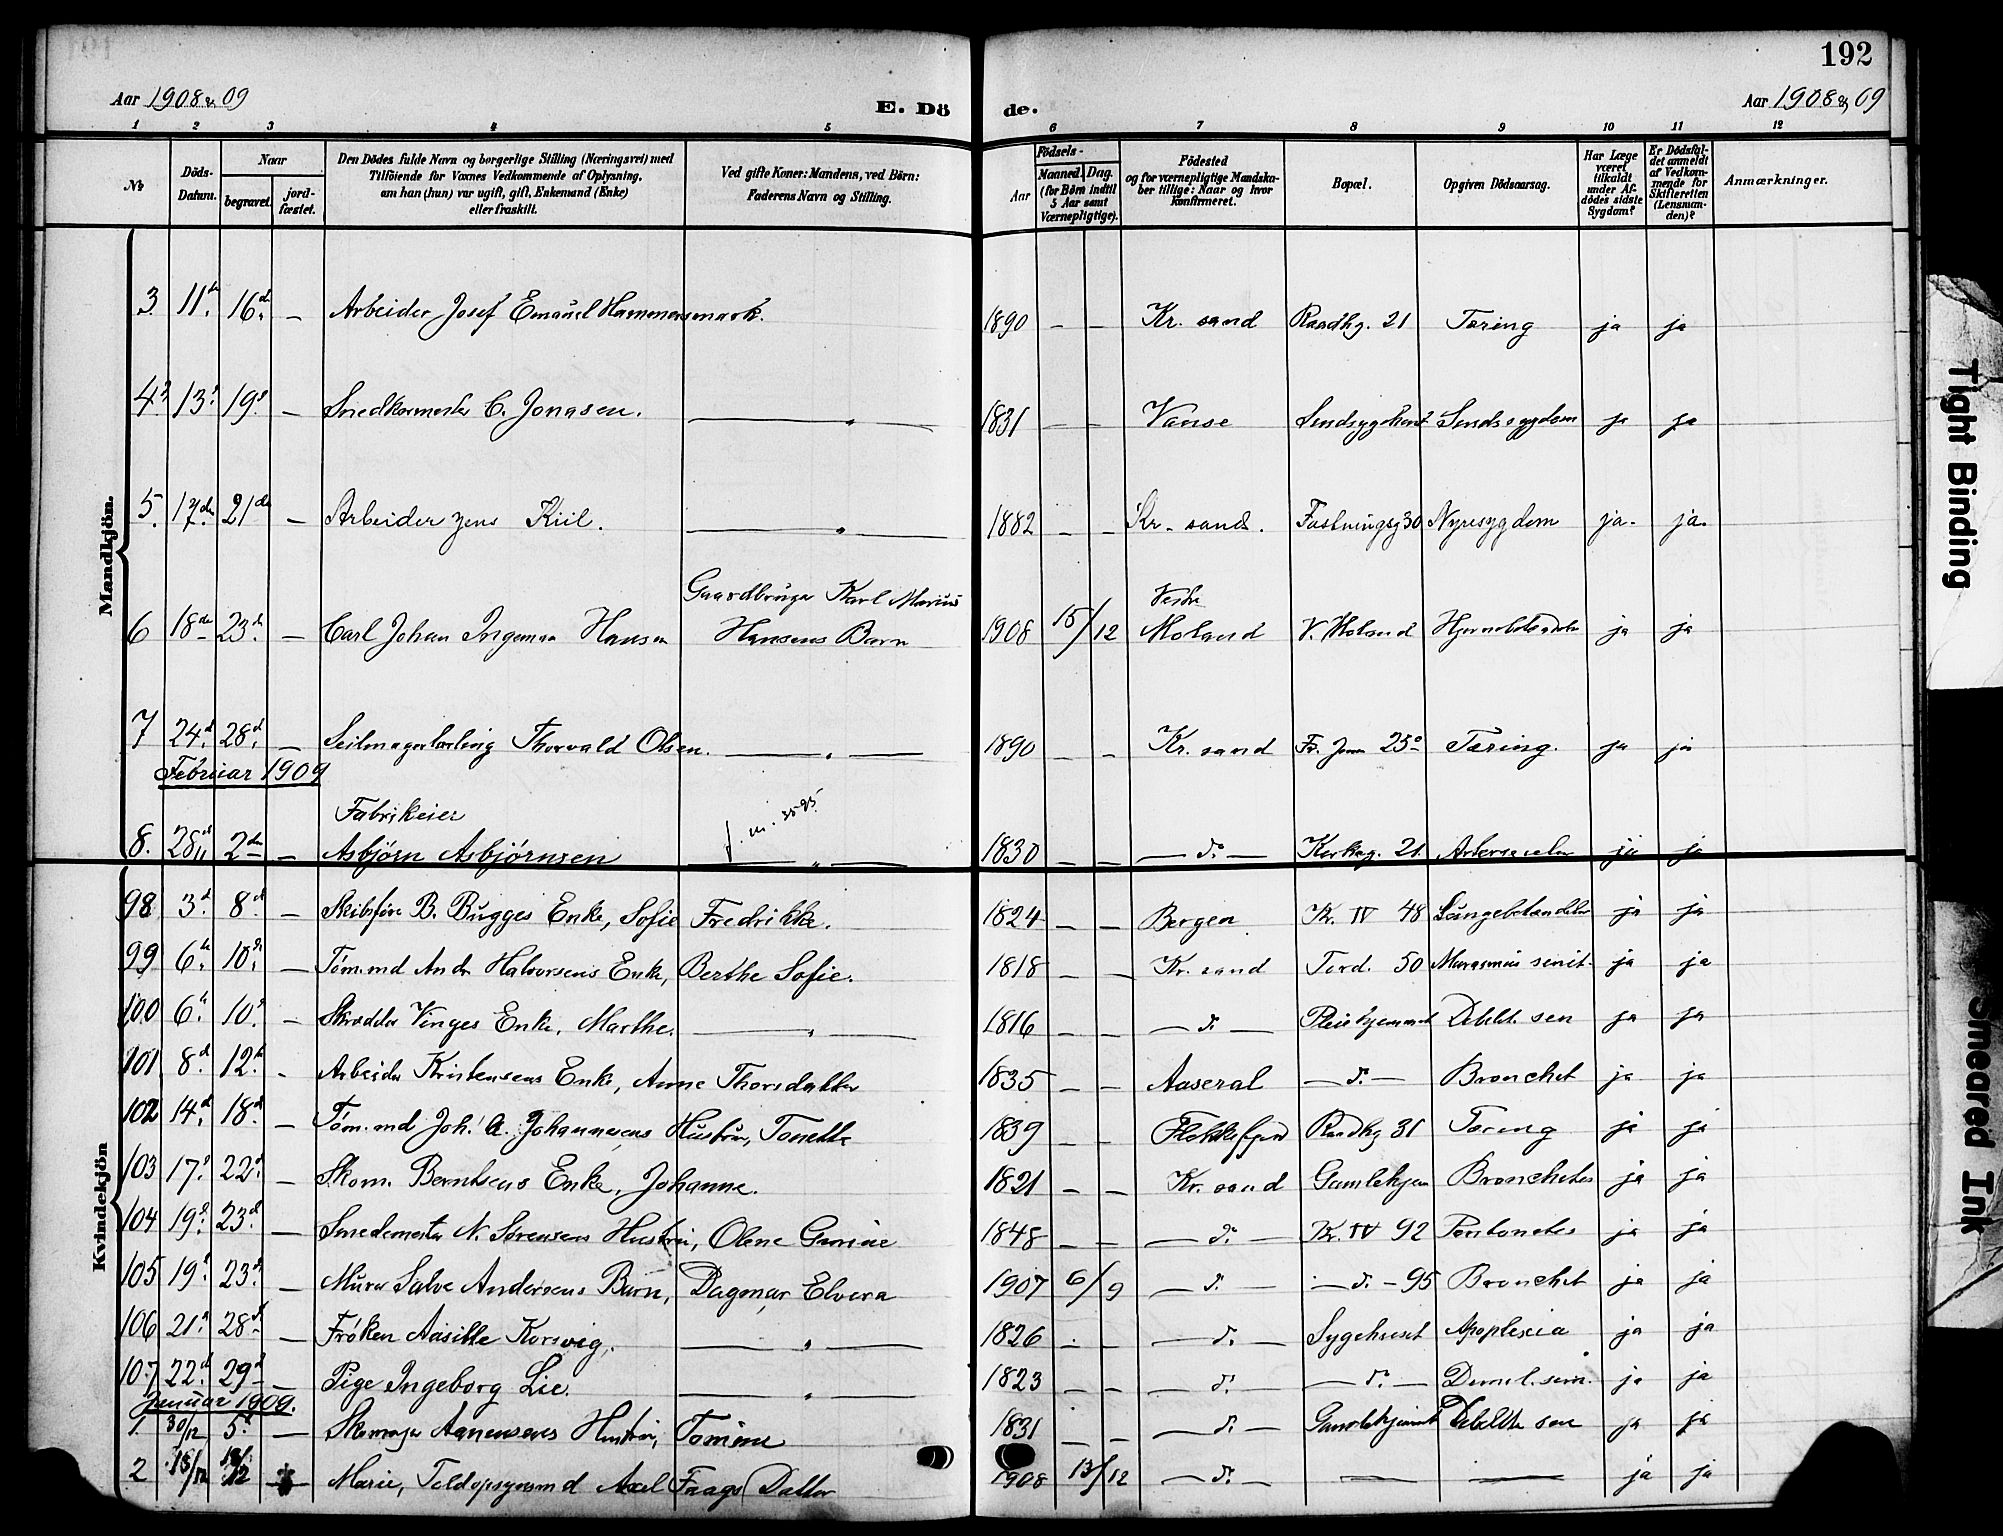 192
Aar 1908 & 09
E. Dö de.
Aar 1908 & 09
1 2 3 4 5 6 7 8 9 10 11 12
№
Döds-Datum.
Naar
begravet.
jord-fæstet.
Den Dödes fulde Navn og borgerlige Stilling (Næringsvei) med
Tilföiende for Voxnes Vedkommende af Oplysning,
om han (hun) var ugift, gift, Enkemand (Enke)
eller fraskilt.
Ved gifte Koner: Mandens, ved Börn:
Faderens Navn og Stilling.
Födsels-
Aar
Maaned. Dag.
(for Börn indtil
5 Aar samt
Værnepligtige).
Födested
og for værnepligtige Mandska-
ber tillige: Naar og hvor
konfirmeret.
Bopæl.
Opgiven Dödsaarsag.
Har Læge
været
tilkaldt
under Af-
dödes sidste
Sygdom?
Er Dödsfal-
det anmeldt
af Vedkom-
mende for
Skifteretten
(Lensman-
den)?
Anmærkninger.
Mandkjön.
3 11te 16de — Arbeider Josef Emanuel Hammersmark. 1890 — — Kr. sand Raadhg. 21 Tæring ja ja
4 13de 19de — Snedkermester C. Jonasen. — " — 1831 — — Vanse Sindssygdom ja ja
5. 17de 21de — Arbeider Jens Kiil. — " — 1882 — — Kr. sand. Fæstningsg 30 Nyresygdom ja. ja.
Gaardbruger Karl Marius
6 18de 23de — Carl Johan Ingeman Hansen Hansens Barn 1908 15/12 Vestre Moland V. Moland ja ja
7 24de 28de — Seilmagerlærling Thorvald Olsen. — " — 1890 — — Kr. sand 25 Tæring. ja ja
Februar 1909
Fabrikeier
8. 28de 2den — Asbjørn Asbjørnsen — " — 1830 — — — do — Kirkeg. 21 ja ja
Kvindekjön
98 3d. 8de — Skibsfører B. Bugges Enke, Sofie Fredrikke. 1824 — — Bergen Kr. IV 48 Lungebetændelse ja ja
99 6te 10de — Tøm.md Andr. Halvorsens Enke, Berthe Sofie. 1818 — — Kr. sand Tord. 50 Marasmus senil. ja ja
100 6te 10de — Skrædder Vinges Enke, Marthe. — " — 1816 — — — do — Pleiehjemmet Debilit. sen ja ja
101 8d. 12te — Arbeider Kristensens Enke, Anne Thorsdatter 1835 — — Aaseral — do — Bronchit ja ja
102 14d. 18d. — Tøm.md Joh. A. Johannesens Hustru, Tonette 1839 — — Flekkefjord Raadhg 31 Tæring ja ja
103 17d. 22d. — Skom. Berntsens Enke, Johanne. 1821 — — Kr. sand Gamlehjem Bronchites ja ja
104 19d. 23d. — Smedemester N. Sørensens Hustru, Olene Gurine 1848 — — — do — Kr. IV 92 Peritonites ja ja
105 19d. 23d. — Murer Salve Andersens Barn, Dagmar Elvera 1907 6/9 — do — — do — 95 Bronchit ja ja
106 21d. 28d. — Frøken Aasille Korsvig. — " — 1826 — — — do — Sygehuset Apoplexia ja ja
107 22d. 29d. — Pige Ingeborg Lie. — " — 1823 — — — do — — do — ja ja
Januar 1909.
1. 30/12 5d. — Skomager Aanensens Hustru, Tomine 1831 — — — do — Gamlehjemmet Debilit. sen ja ja
2 13/12 — Marie, Toldopsynsmd Axel Faags Datter 1908 13/12 — do — — — ja ja
Tight Binding
Smeared Ink